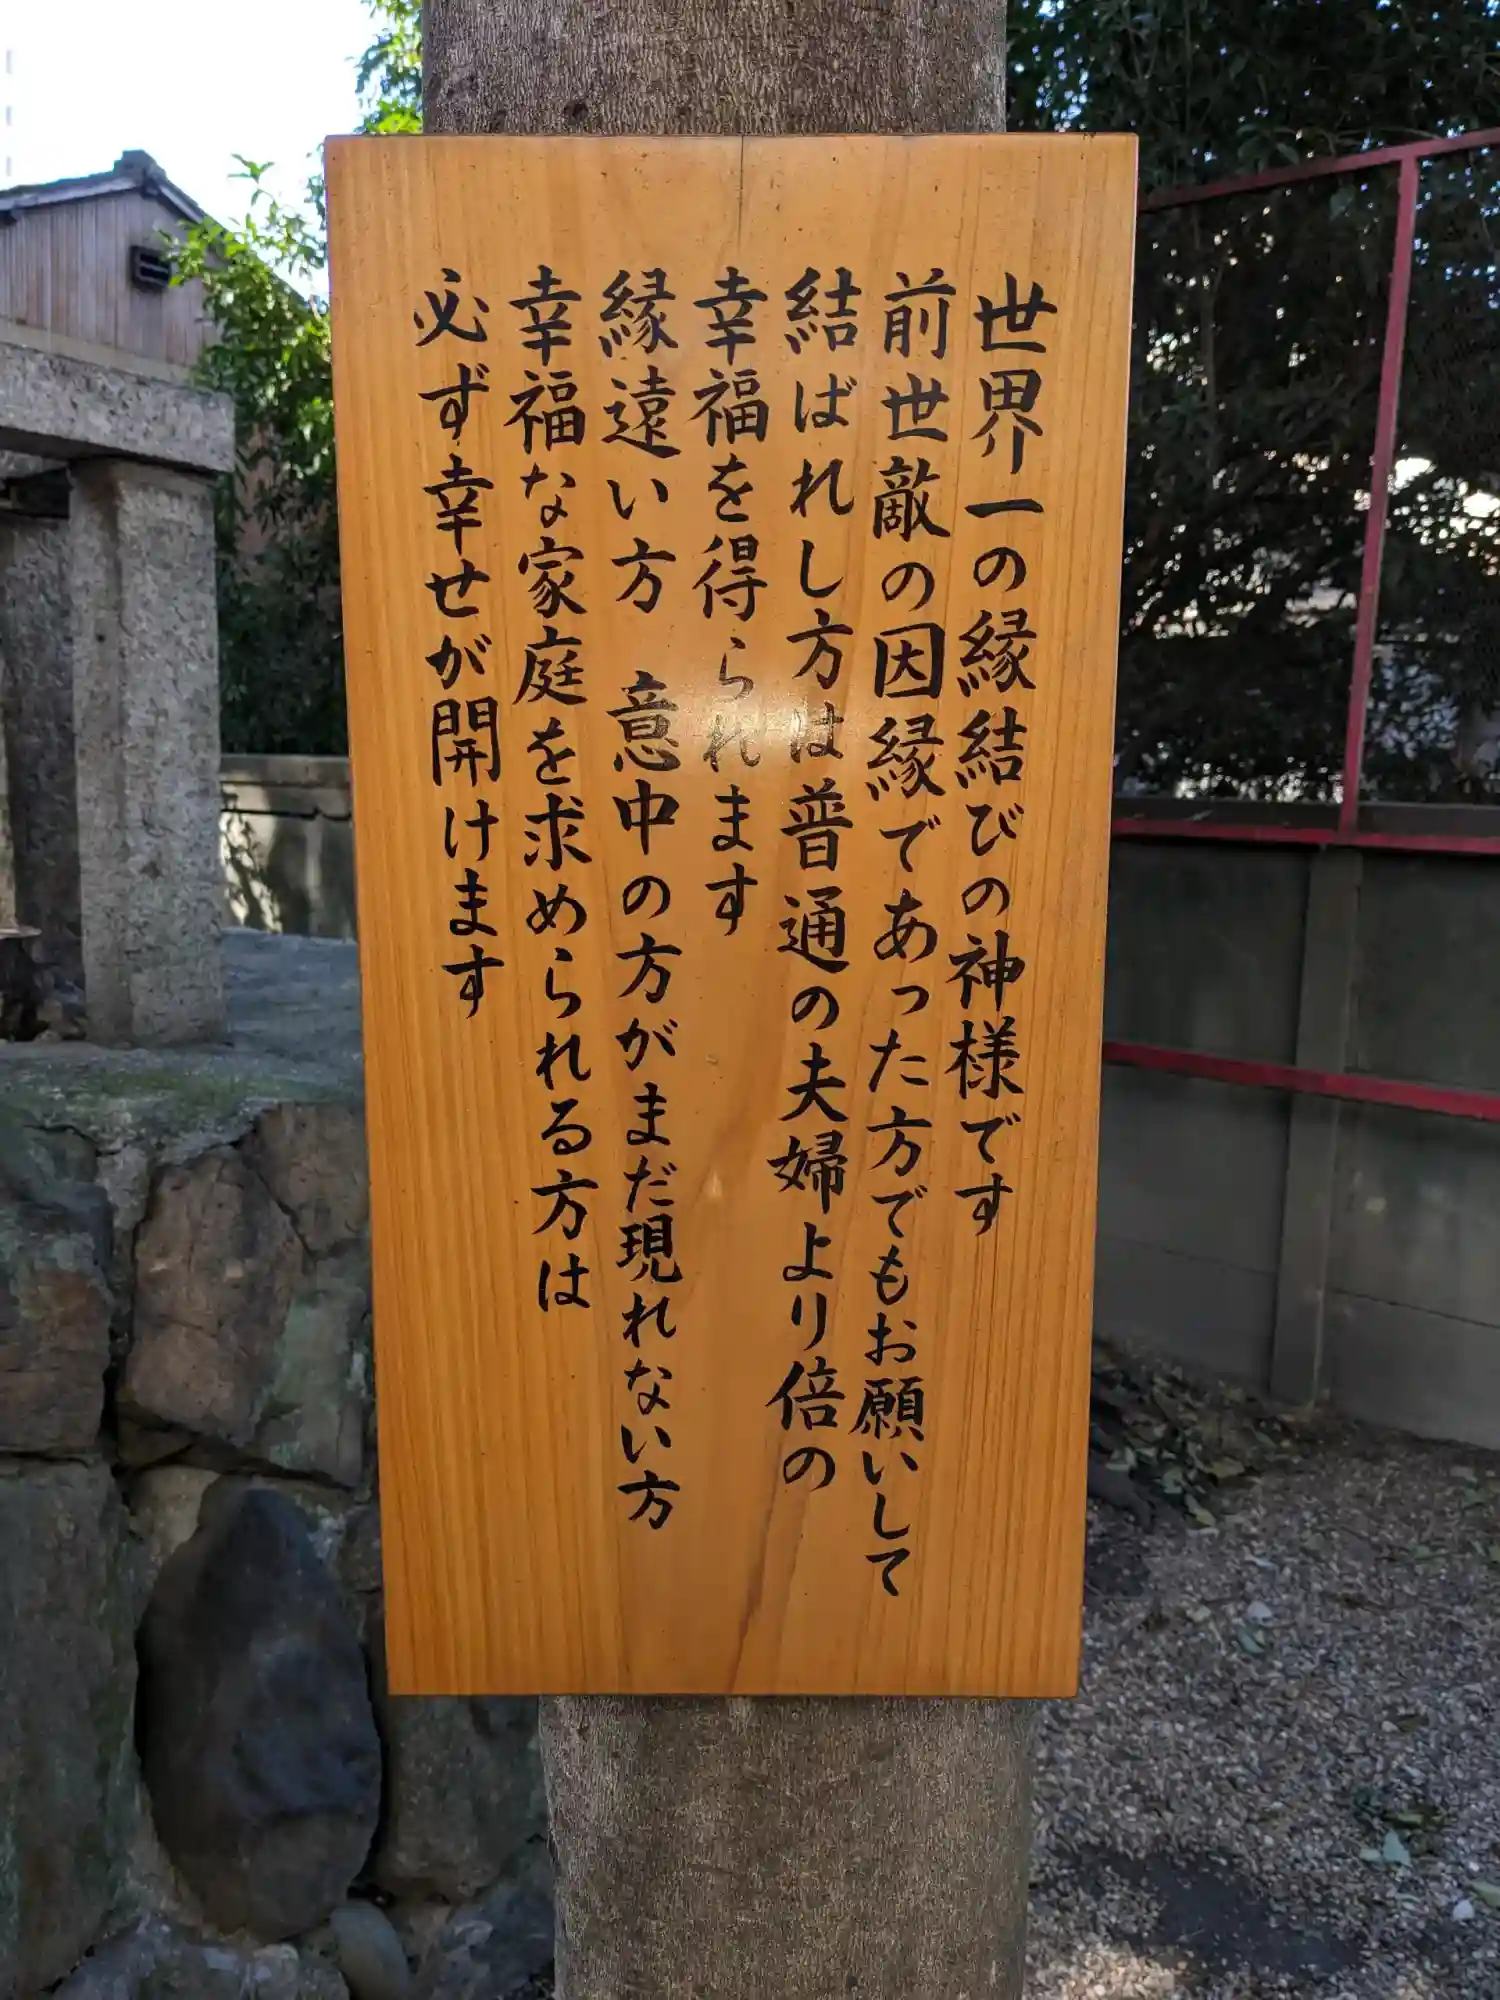 世界一の縁結びの神様です
前世敵の因縁であった方でもお願いして
結ばれし方は普通の夫婦より倍の
幸福を得られます
縁遠い方　意中の方がまだ現れない方
幸福な家庭を求められる方は
必ず幸せが開けます